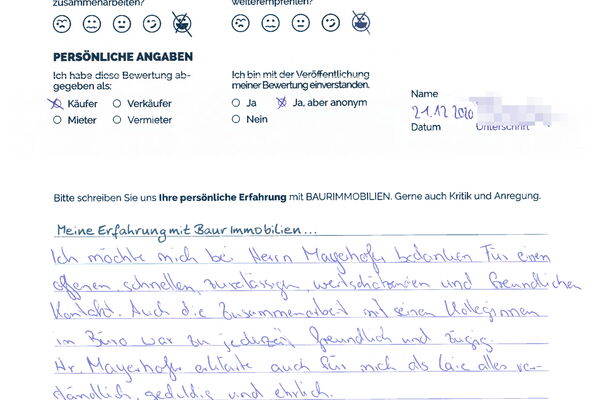 zusammenarbeiten?
weiterempfehlen?
PERSÖNLICHE ANGABEN
Ich habe diese Bewertung ab-
gegeben als:
Käufer Verkäufer
Mieter Vermieter
Ich bin mit der Veröffentlichung
meiner Bewertung einverstanden.
Ja Ja, aber anonym
Nein
Name
21.12.2020
Datum Unterschrift
Bitte schreiben Sie uns Ihre persönliche Erfahrung mit BAURIMMOBILIEN. Gerne auch Kritik und Anregung.
Meine Erfahrung mit Baur Immobilien...
Ich möchte mich bei Herrn Mayerhofer bedanken für einen
offenen, schnellen, zuverlässigen, wertschätzenden und freundlichen
Kontakt. Auch die Zusammenarbeit mit seinen Kolleginnen
im Büro war zu jederzeit freundlich und zügig.
Hr. Mayerhofer erklärte auch für mich als Laie alles ver-
ständlich, geduldig und ehrlich.